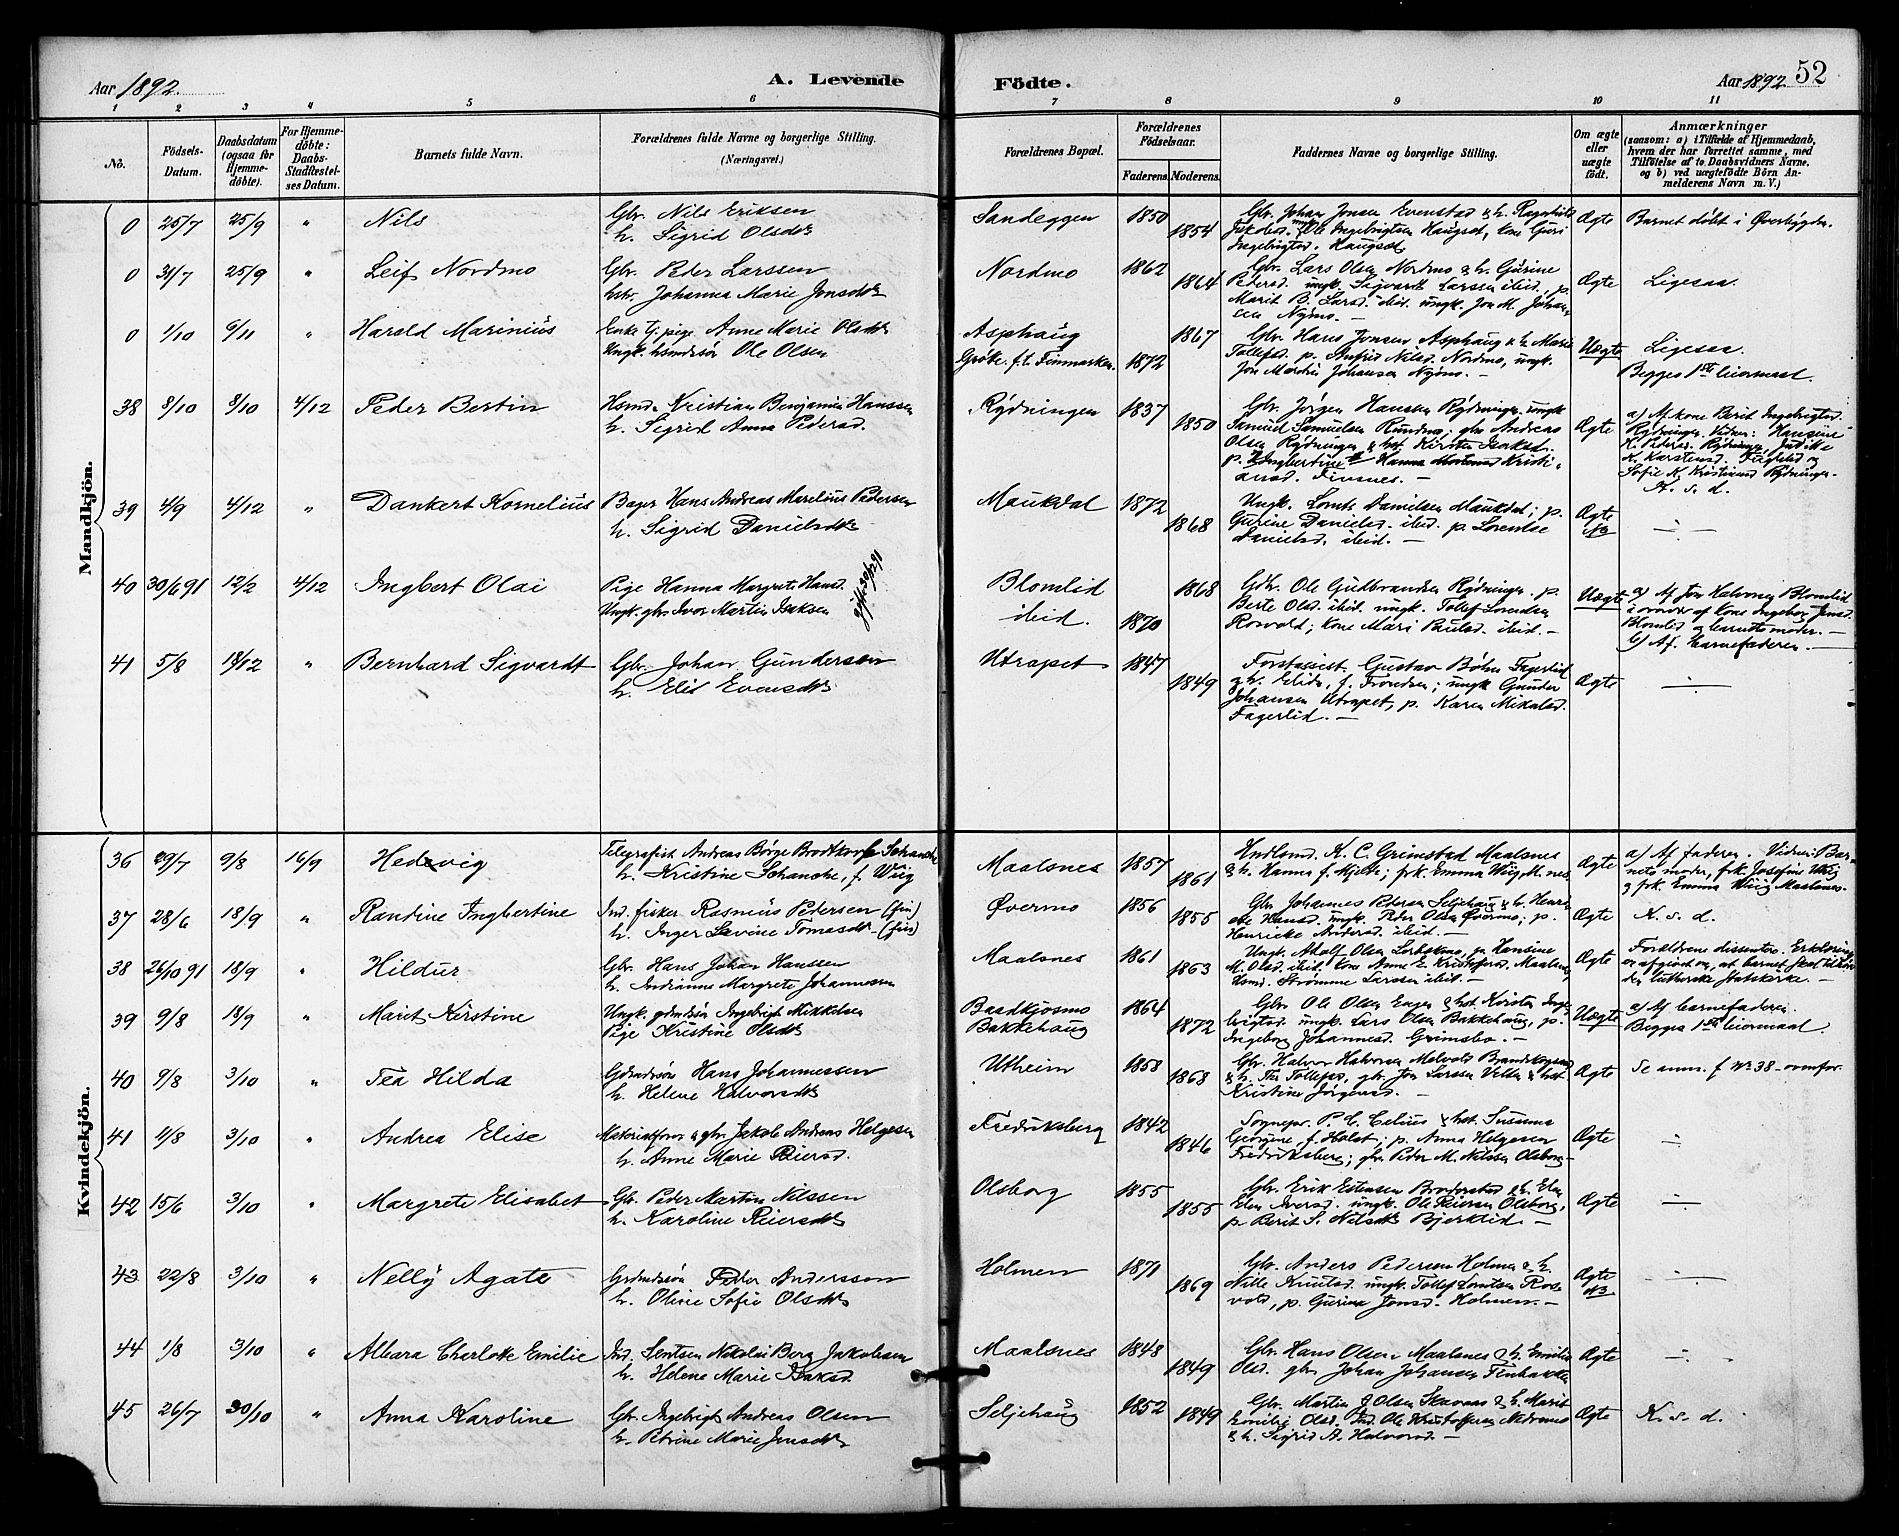 Aar 1892.
A. Levende
Födte.
Aar 1892. 52
1 2 3 4 5 6 7 8 9 10 11
No.
Födsels-Datum.
Daabsdatum (ogsaa for Hjemmedöbte).
For Hjemmedöbte: Daabs-Stadfæstelses Datum.
Barnets fulde Navn.
Forældrenes fulde Navne og borgerlige Stilling.
(Næringsvei.)
Forældrenes Bopæl.
Forældrenes Födselsaar.
Faderens. Moderens.
Faddernes Navne og borgerlige Stilling.
Om ægte eller uægte födt.
Anmærkninger
(saasom: a) i Tilfælde af Hjemmedaab,
hvem der har forrettet samme, med
Tilföielse af to Daabsvidners Navne,
og b) ved uægtefödte Börn Anmelderens Navn m. V.)
Mandkjön.
0 25/7 25/9 " Nils
Gbr. Nils Eriksen
h. Sigrid Olsdtr
Sandeggen 1850 1854
Gbr. Johan Jonsen Evenstad & h. Ragnhild
Jakobsd. ungk. Ole Ingebrigtsen Haugset, kone Guri
Ingebrigtsd. Haugset
Ægte
Barnet döbt i Øverbygden.
0 31/7 25/9 " Leif Nordmo
Gbr. Peder Larssen
hstr. Johanna Marie Jonsdtr
Nordmo 1862 1864
Gbr. Lars Olsen Nordmo & h. Gurine
Pedersd. ungk. Sigvart Larssen ibid., p.
Marit B. Larsd. ibid. ungk. Jon M. Johansen
Nymo. —
Ægte
Ligesaa.
0 1/10 6/11 " Harald Marinius
Enke tj. pige Anne Marie Olsdtr
Ungk. hsmdssön Ole Olsen
Asphaug
f. t. Finmarken. 1867 1872
Gbr. Hans Jonsen Asphaug & h. Marie
Tollefsd. p. Anfrid Nilsd. Nordmo, ungk.
Jon Johansen Nymo. —
Uægte
Ligesaa.
Begges 1ste leiermaal.
38 8/10 8/10 4/12 Peder Bertin
Hsmd. Kristian Benjamin Hanssen
h. Sigrid Anna Pedersd.
Rydningen 1837 1850
Gbr. Jörgen Hansen Rydningen, ungk
Samuel Samuelsen Rundmo; gbr Andreas
Olsen Rydningen & hst Kirsten Isaksd.
p. Ingbertine Hanna Kristiansd.
Finsnes. —
Ægte
a) Af kone Berit Ingebrigtsd.
Rydningen. Vidner: Hansine
K. Pedersd. Rydningen
K. Karstensd. Fuglelid og
Sofie K. Kristiansd. Rydningen.
N. s. d.
39 4/9 4/12 " Dankert Kornelius
Bager Hans Andreas Marelius Pedersen
h. Sigrid Danielsdtr
Maukdal 1872 1868
Ungk. Lorents Danielsen Maukdal; p.
Gurine Danielsd. ibid. p. Lorentse
Danielsd. ibid. —
Ægte
÷
40 30/6 91 12/2 4/12 Ingbert Olai
Pige Hanna Margrete Hansd.
Ungk. gbr. Ivar Martin Isaksen
Blomlid
ibid. 1868 1870
Gdbr. Ole Gulbrandsen Rydningen. p.
Berte Olsd. ibid. ungk. Tollef Lorentsen
Rosvold; kone Mari Paulsd. ibid. —
Uægte
a) Af Jon Halvorsen Blomlid
i nærvær af kone Ingeborg Jensd.
Blomlid og barnets moder. —
b) Af barnefaderen. —
41 5/8 18/12 " Bernhard Sigvardt
Gbr. Johan Gundersen
h. Elid Evensdtr
Utrapet 1847 1849
Forstassist. Gustav Böhn Fagerlid
& h. Elida, f. Frondsen; ungk Gunder
Johansen Utrapet, p. Karen Mikalsd.
Fagerlid. —
Ægte
÷
Kvindekjön.
36 29/7 9/8 16/9 Hedevig
Telegrafist Andreas Börge Brodtkorb Schanche
h. Kristine Schanche, f. Wiig
Maalsnes 1857 1861
Hndlsmd. K. C. Grimstad Maalsnes
& h. Hanna f. Mjelde; frk. Emma Wiig M.nes
Ægte
a) Af faderen. Vidner: Barnets
moder, frk. Josefine Wiig
og frk. Emma Wiig Maalsnes.
37 28/6 18/9 " Randine Ingbertine
Ind. fisker Rasmus Pedersen (fin)
h. Inger Lovine Tomasdtr. (fin)
Øvermo 1856 1855
Gbr Johannes Pedersen Seljehaug & h. Henrikke
Hansd. ungk. Peder Olsen Øvermo; p.
Henrikke Andersd. ibid. —
Ægte
N. s. d.
38 26/10 91 18/9 " Hildur
Gbr. Hans Johan Hanssen
h. Indianna Margrete Johannessen
Maalsnes 1861 1863
Ungk. Adolf Olsen, p. Hansine
M. Olsd. ibid, kone Anne E. Kristofersd. Maalsnes
Hsmd. Strömme Larssen ibid. —
Ægte
Forældrene dissentere. Erklæring
er afgivet om, at barnet skal tilhöre
den lutherske Statskirke. —
39 9/8 18/9 " Marit Kirstine
Ungk. gdmdssön Ingebrigt Mikkelsen
Pige Kristine Olsdtr
Baadkjosmo
Bakkehaug 1864 1872
Gbr. Ole Olsen Engen & hst. Kirsten Ingebrigtsd.
ungk. Lars Olsen Bakkehaug, p.
Ingeborg Johannesd. Grimsbo. —
Uægte
a) Af barnefaderen.
Begges 1ste leiermaal.
40 9/8 3/10 " Tea Hilda
Gdmdssön Hans Johannessen
h. Helene Halvorsdtr
Utheim 1858 1868
Gbr. Halvor Halvorsen Molvold Brandskognes
& h. Tollefsd., gbr. Jon Larssen & hst.
Kristine Jörgensd.
Ægte
Se anm. f No 38 - ovenfor.
41 4/8 3/10 " Andrea Elise
Materialforv. & gbr. Jakob Andreas Helgesen
h. Anne Marie Reiersd.
Fredriksberg 1842 1846
Sognepr. P. C. Celius & hst. Susanna
Georgine, f. Holst; p. Anna Helgesen
Fredriksberg; gbr. Peder M. Nilssen Olsborg —
Ægte
÷
42 15/6 3/10 " Margrete Elisabet
Gbr. Peder Martin Nilssen
h. Karoline Reiersdtr
Olsborg 1855 1855
Gbr. Erik Estensen Brodorstad & h. Elen
Iversd. ungk. Ole Reiersen Olsborg,
p. Berit S. Nilsdtr. Bjerklid. —
Ægte
÷
43 22/8 3/10 " Nelly Agate
Grdmdssön Peder Anderssen
h. Olivie Sofie Olsdtr
Holmen 1871 1869
Gbr. Anders Pedersen Holmen & h.
Nille Knutsd. ungk. Tollef Lorntsen Rosvold,
p. Gurine Jonsd. Holmen. —
Ægte
NB
÷
44 1/8 3/10 " Alvara Charlotte Emilie
Ind. Nikolai Berg Jakobsen
h. Helene Marie Isaksd.
Maalsnes 1848 1849
Gbr. Hans Olsen Maalsnes & h. Emilie
Olsd. gbr Johan Johansen Finbakken
Ægte
÷
45 26/7 30/10 " Anna Karoline
Gbr. Ingebrigt Andreas Olsen
h. Petrine Marie Jensdtr
Seljehaug 1852 1849
Gbr. Martin J. Olsen & h. Marit
Emilie Olsd. Ind. Ole Kristoffersen Nedremo
& h. Sigrid A. Halvorsd. —
Ægte
N. s. d.